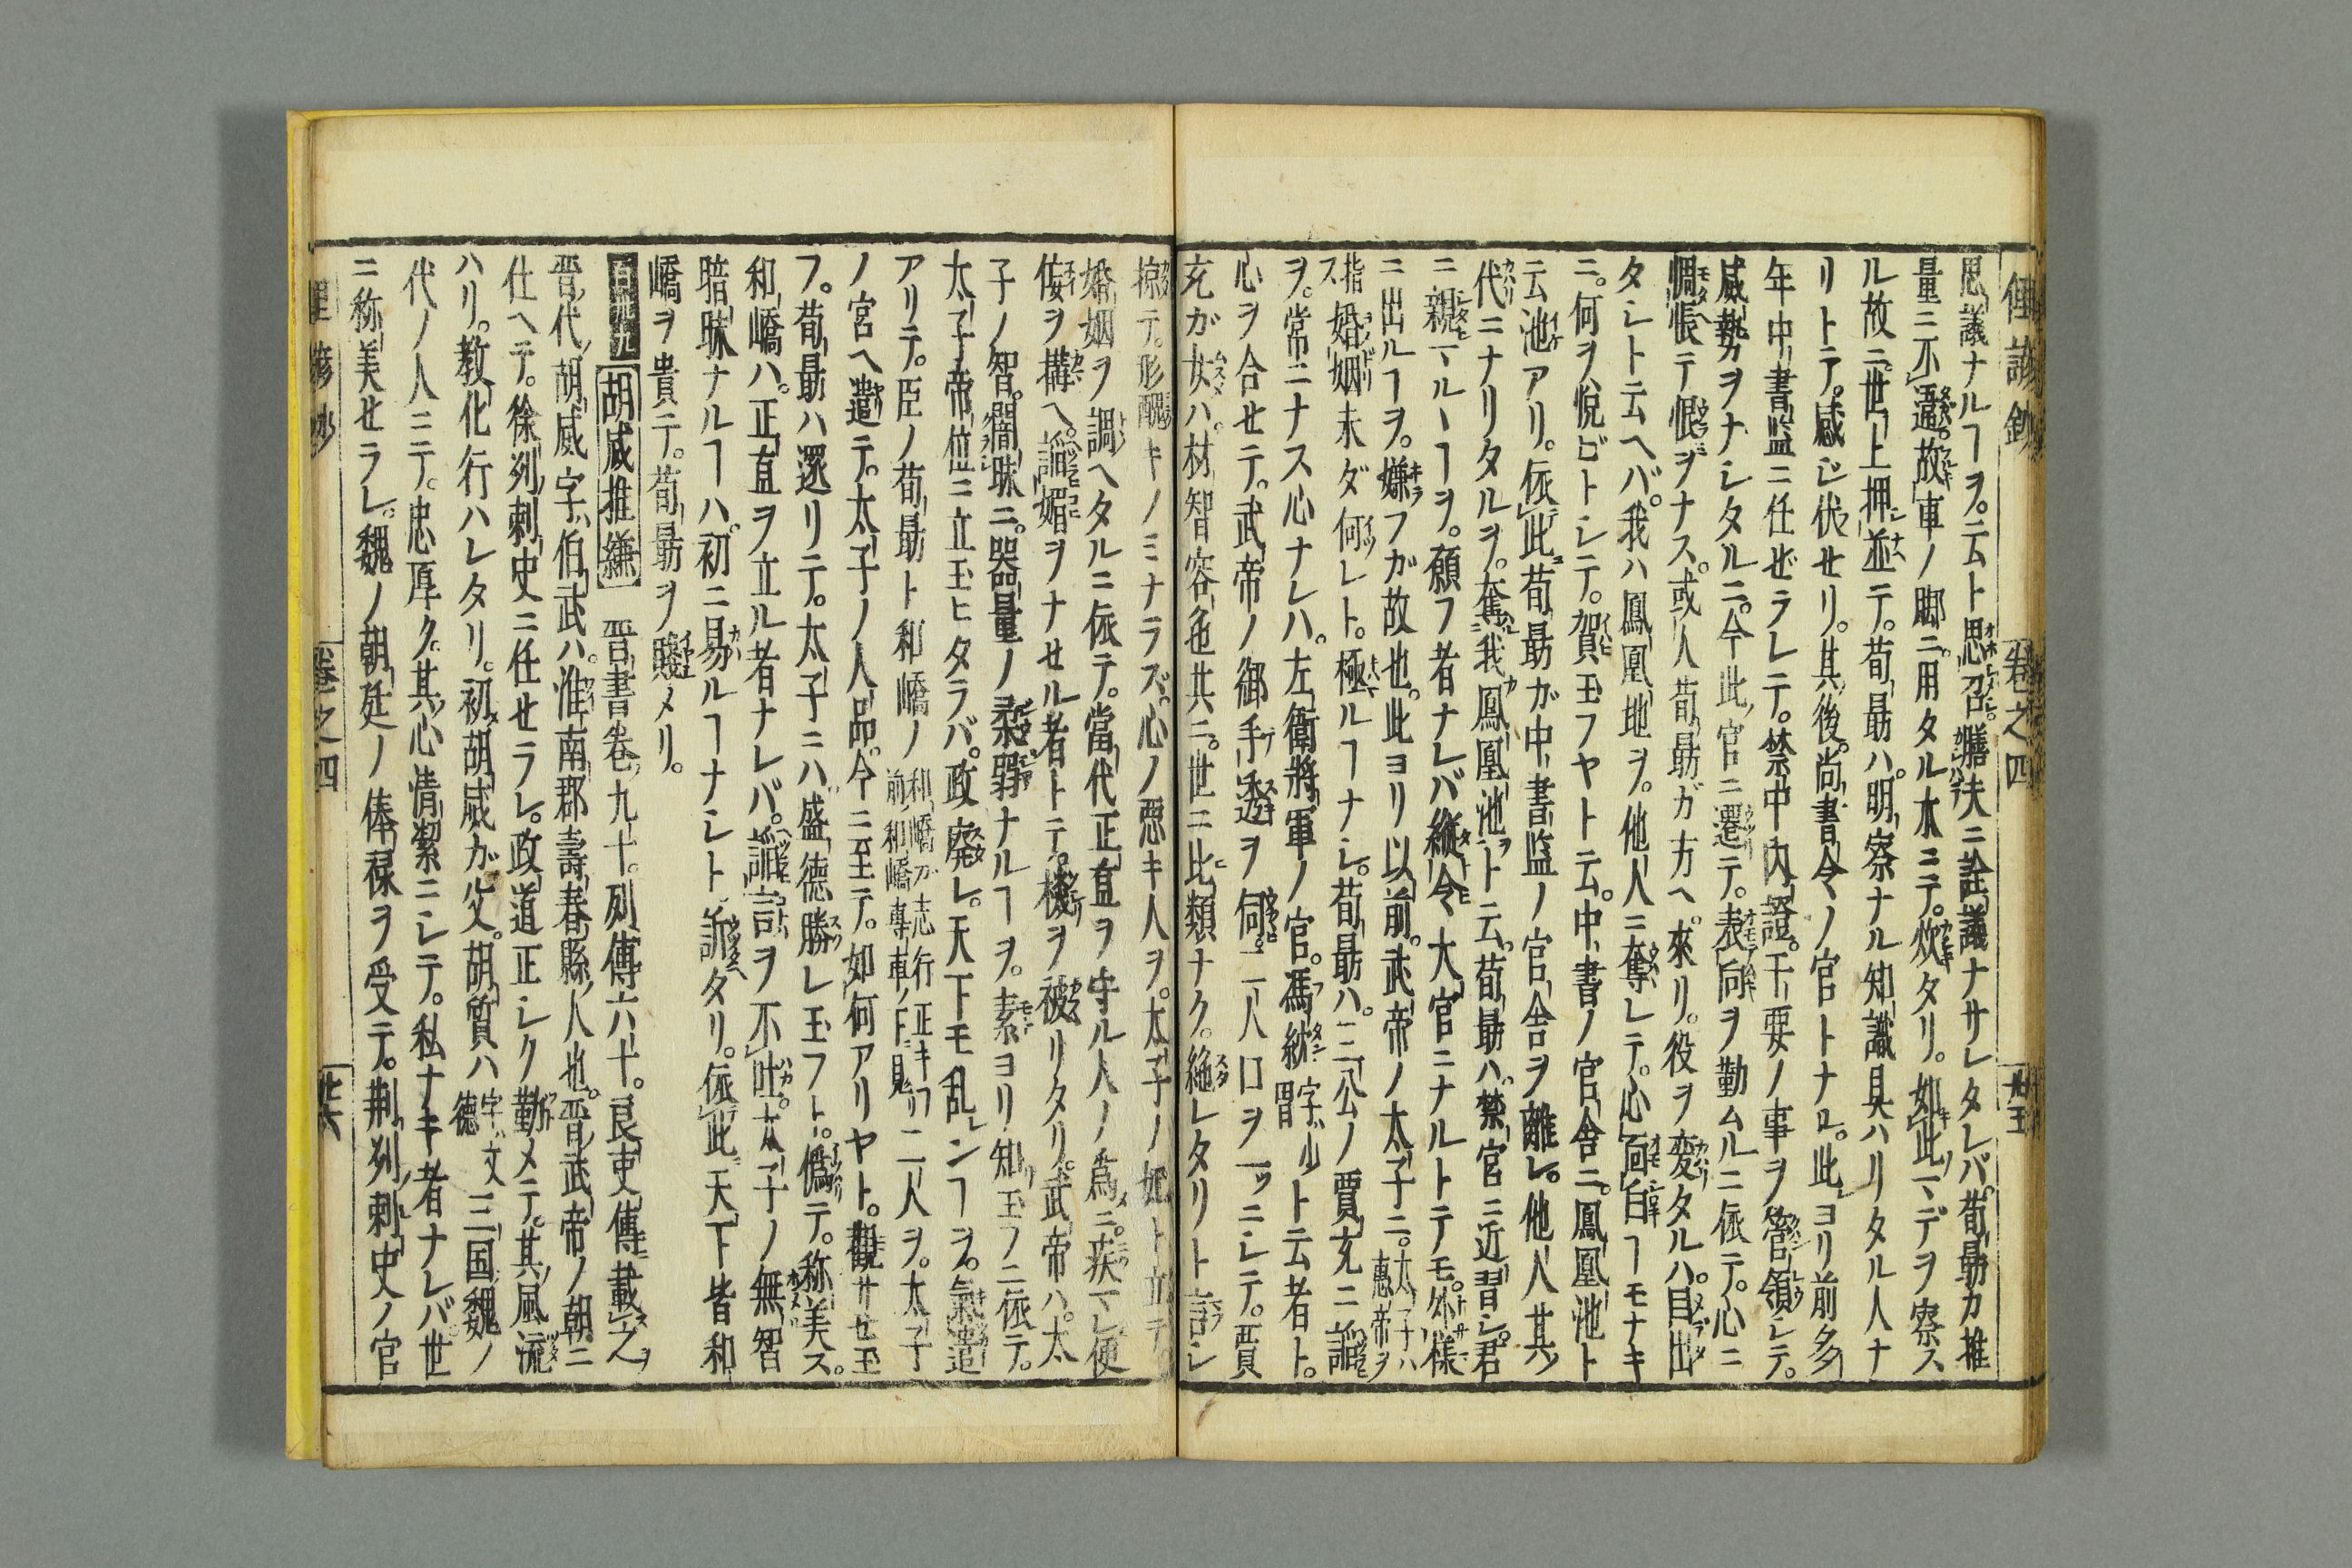 俚諺鈔 卷之四 廿五
思議ナルヿヲ。云ト思召。膳夫ニ詮議ナサレタレバ。荀勗カ推
量ニ不違。故車ノ脚ニ用タル木ニテ。炊タリ。如此マデヲ察ス
ル故ニ。世上押並テ。荀勗ハ。明察ナル知識具ハリタル人ナ
リトテ。感ジ伏セリ。其後。尚書令ノ官トナル。此ヨリ前多
年中書監ニ任ゼラレテ。禁中内證。干要ノ事ヲ管領シテ。
威勢ヲナシタルニ。今此官ニ遷テ。表向ヲ勤ムルニ依テ。心ニ
惆悵テ恨ヲナス。或人荀勗ガ方ヘ。來リ。役ヲ変タルハ。目出
タシト云ヘバ。我ハ鳳凰地ヲ。他人ニ奪レテ。心面白ヿモナキ
ニ。何ヲ悦ビトシテ。賀玉フヤト云。中書ノ官舎ニ。鳳凰池ト
云池アリ。依此荀勗ガ中書監ノ官舎ヲ離レ。他人其
代ニナリタルヲ。奪我鳳凰池ト云。荀勗ハ禁官ニ近習シ。君
ニ親マルヽヿヲ。願フ者ナレバ縦令大官ニナルトテモ。外様
ニ出ルヿヲ。嫌フガ故也。此ヨリ以前。武帝ノ太子ニ。太子ナハ惠帝ヲ
指ス婚姻未ダ何レト。極ルヿナシ。荀勗ハ。三公ノ賈充ニ謟
ヲ。常ニナス心ナレハ。左衛將軍ノ官。馮紞字少冑ト云者ト。
心ヲ合セテ。武帝ノ御手透ヲ伺。二人口ヲ一ツニシテ。賈
充ガ女ハ。材智容色共ニ。世ニ比類ナク。絶レタリト言シ
掠テ。形醜キノミナラズ。心ノ惡キ人ヲ。太子ノ妃ト立テ。
婚姻ヲ調ヘタルニ依テ。當代正直ヲ守ル人ノ爲ニ。疾マレ便
佞ヲ構ヘ。謟媚ヲナセル者トテ。機ヲ被リタリ。武帝ハ。太
子ノ智。闇昧ニ。器量ノ柔弱ナルヿヲ。素ヨリ知玉フニ依テ。
太子帝位ニ立玉ヒタラバ。政廃レ。天下モ乱ンヿヲ。氣遣
アリテ。臣ノ荀勗ト和嶠ノ和嶠ガ志行正キヿ前ノ和嶠專車ノ下ニ見リ二人ヲ。太子
ノ宮ヘ遣テ。太子ノ人品。今ニ至テ。如何アリヤト。觀サセ玉
フ。荀勗ハ還リテ。太子ニハ盛德勝レ玉フト。僞テ。称美ス。
和嶠ハ。正直ヲ立ル者ナレバ。謟言ヲ不吐。太子ノ無智
暗昧ナルヿハ。初ニ易ルヿナシト訴タリ。依此天下皆和
嶠ヲ貴テ。荀勗ヲ賤メリ。
胡威推縑 晋書卷九十。列傳六十。良吏傳載之
晋代胡威字伯武ハ。淮南郡壽春縣人也。晋武帝ノ朝ニ
仕ヘテ。徐列刺史ニ任セラレ。政道正シク勤メテ。其風流
ハリ。教化行ハレタリ。初胡威ガ父。胡質ハ字文德三国魏ノ
代ノ人ニテ。忠厚ク。其心情潔ニシテ。私ナキ者ナレバ世
ニ称美セラレ。魏ノ朝廷ノ俸禄ヲ受テ。荆列刺史ノ官
卷之四 廿六